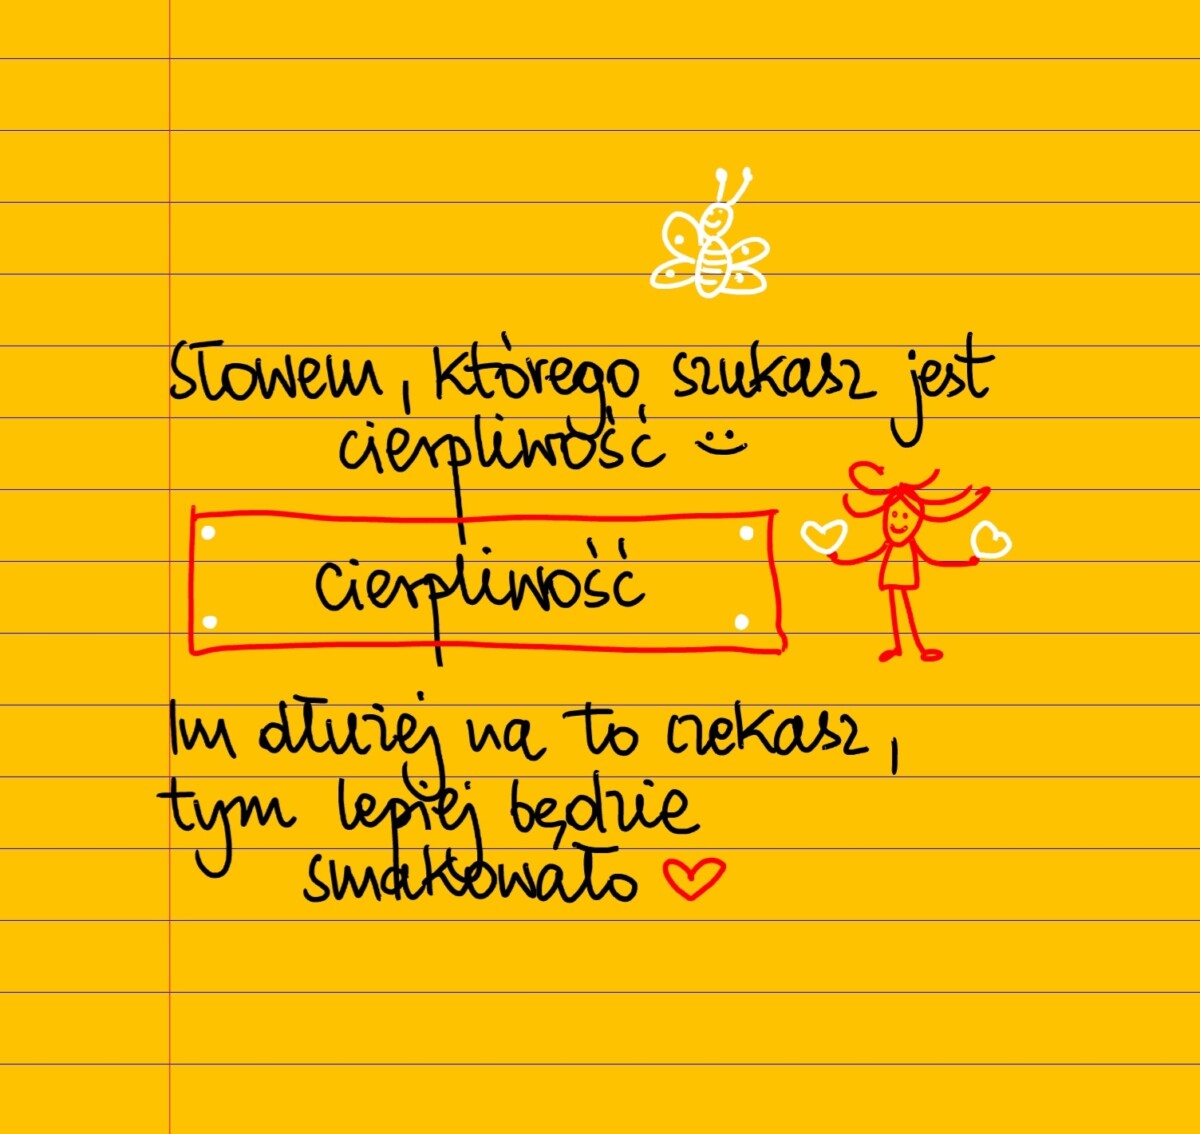 Słowem, którego szukasz jest
cierpliwość
cierpliwość
Im dłużej na to czekasz,
tym lepiej będzie
smakowało